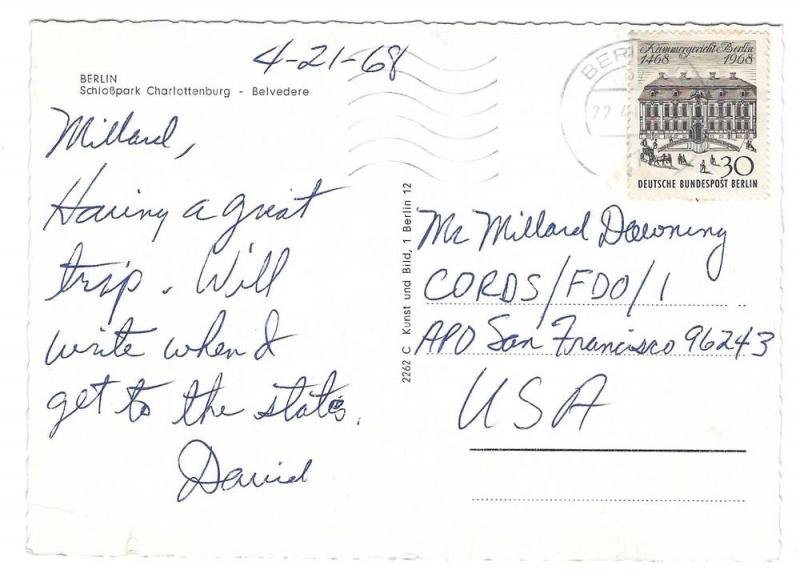 4-21-68
BERLIN
Schloßpark Charlottenburg - Belvedere
Millard,
Having a great
trip. Will
write when I
get to the states.
David
2262 C Kunst und Bild, 1 Berlin 12
BER
22.4
Kammergericht Berlin
1468 1968
30
DEUTSCHE BUNDESPOST BERLIN
Mr Millard Downing
CORDS/FDO/1
APO San Francisco 96243
USA